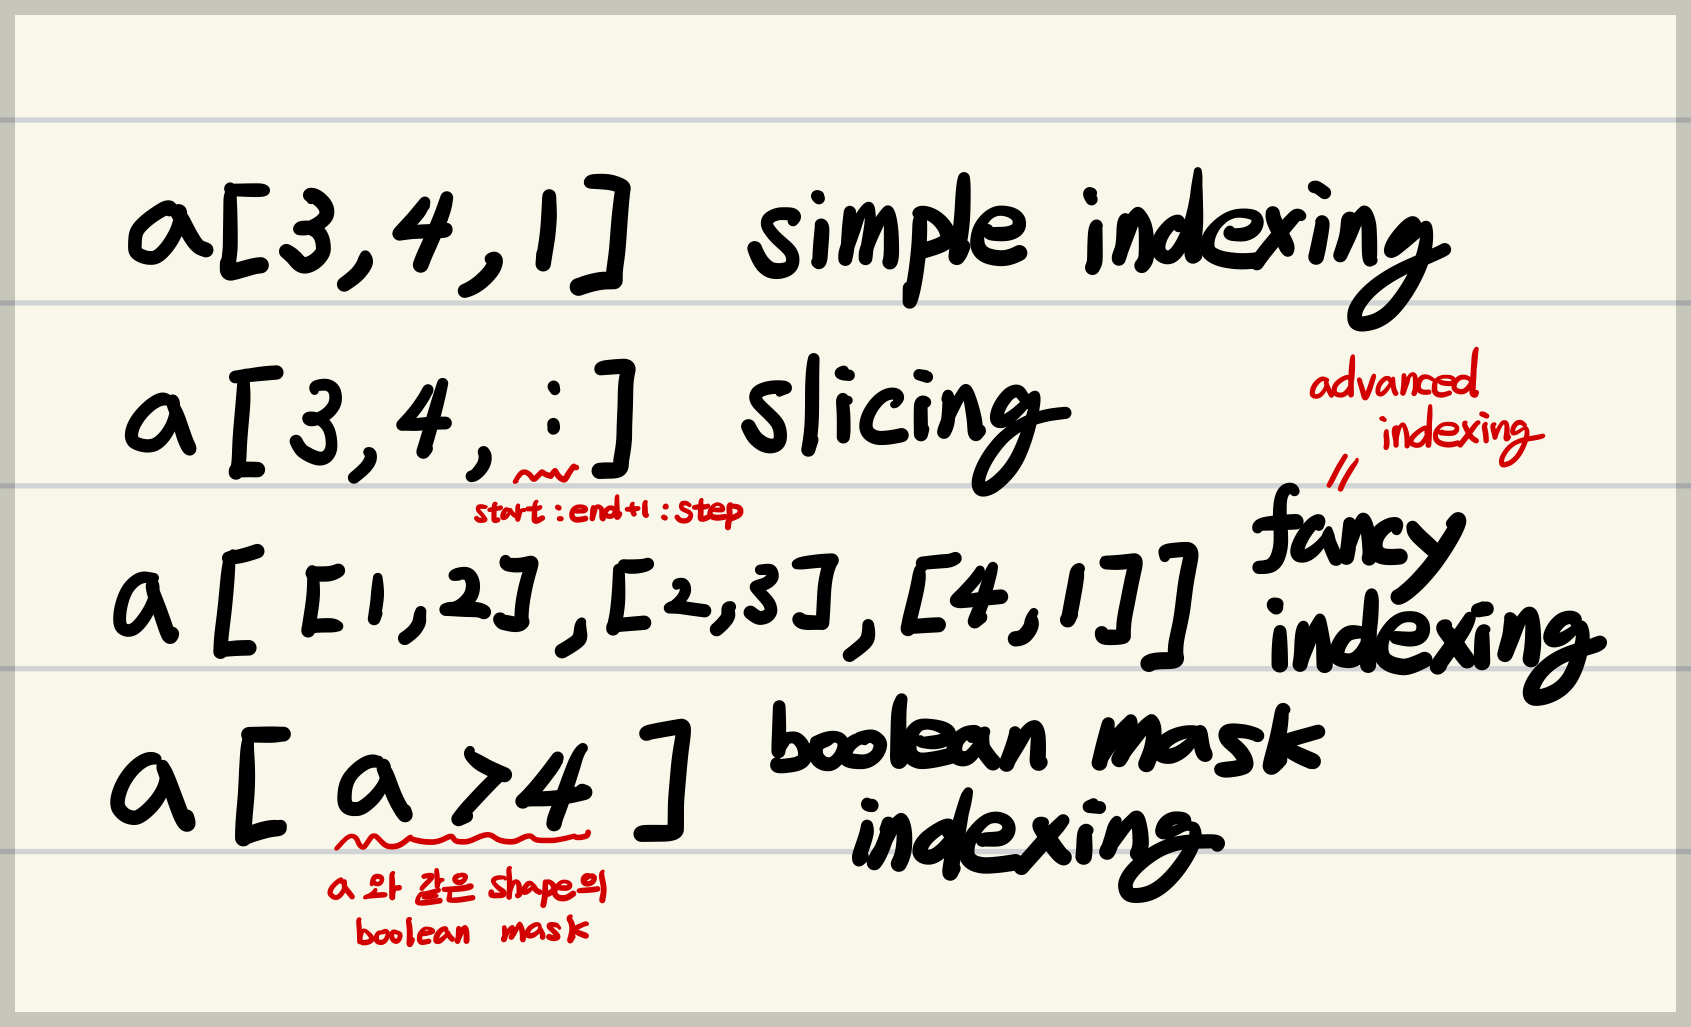 a[3,4,1] simple indexing
a[3,4,:] slicing
start:end+1:step
advanced
indexing
//
a[[1,2],[2,3],[4,1]] fancy
indexing
a[a>4] boolean mask
indexing
a와 같은 shape의
boolean mask